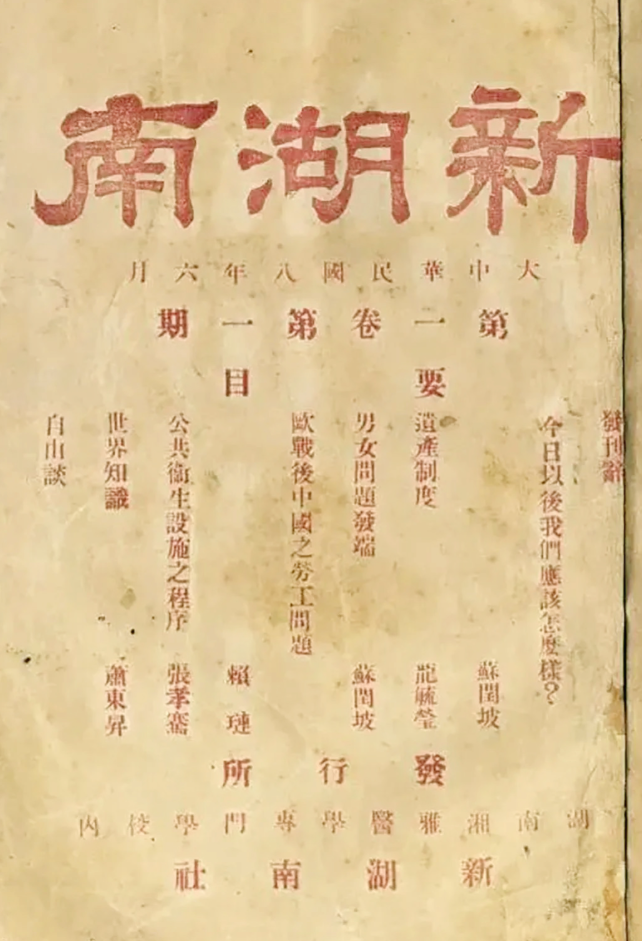 新湖南
大中華民國八年六月
第一卷第一期
要目
發刊辭
今日以後我們應該怎麼樣？
蘇閏坡
遺產制度
龍毓瑩
男女問題發端
蘇閏坡
歐戰後中國之勞工問題
賴璉
公共衞生設施之程序
張孝騫
世界知識
蕭東昇
自由談
發行所
湖南湘雅醫學專門學校內
新湖南社